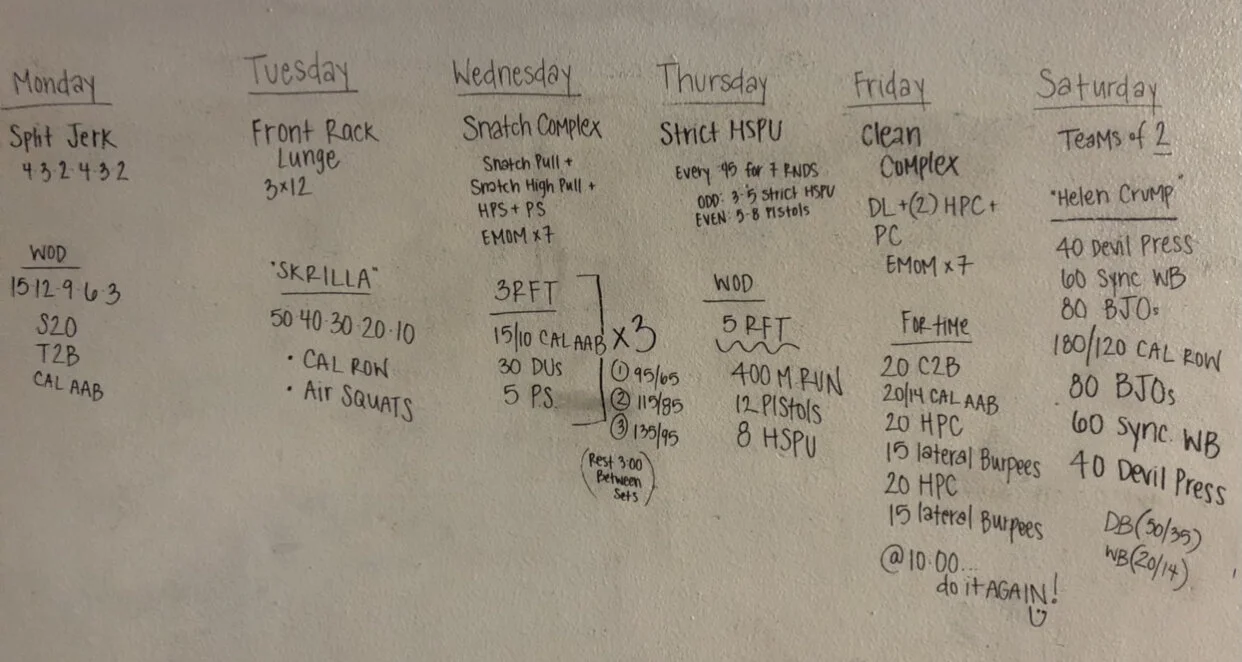 Monday
Split Jerk
4·3·2·4·3·2
WOD
15·12·9·6·3
S2O
T2B
CAL AAB
Tuesday
Front Rack
Lunge
3×12
"SKRILLA"
50·40·30·20·10
• CAL ROW
• Air SQUATS
Wednesday
Snatch Complex
Snatch Pull +
Snatch High Pull +
HPS + PS
EMOM x7
3RFT
15/10 CAL AAB
30 DUs
5 PS
x3
① 95/65
② 115/85
③ 135/95
(Rest 3:00
Between
Sets)
Thursday
Strict HSPU
Every :45 for 7 RNDS
ODD: 3-5 Strict HSPU
EVEN: 5-8 Pistols
WOD
5 RFT
400 M RUN
12 Pistols
8 HSPU
Friday
Clean
Complex
DL + (2) HPC +
PC
EMOM x7
For time
20 C2B
20/14 CAL AAB
20 HPC
15 lateral Burpees
20 HPC
15 lateral Burpees
@10:00...
do it AGAIN!
Saturday
Teams of 2
"Helen Crump"
40 Devil Press
60 Sync WB
80 BJOs
180/120 CAL ROW
80 BJOs
60 Sync. WB
40 Devil Press
DB(50/35)
WB(20/14)